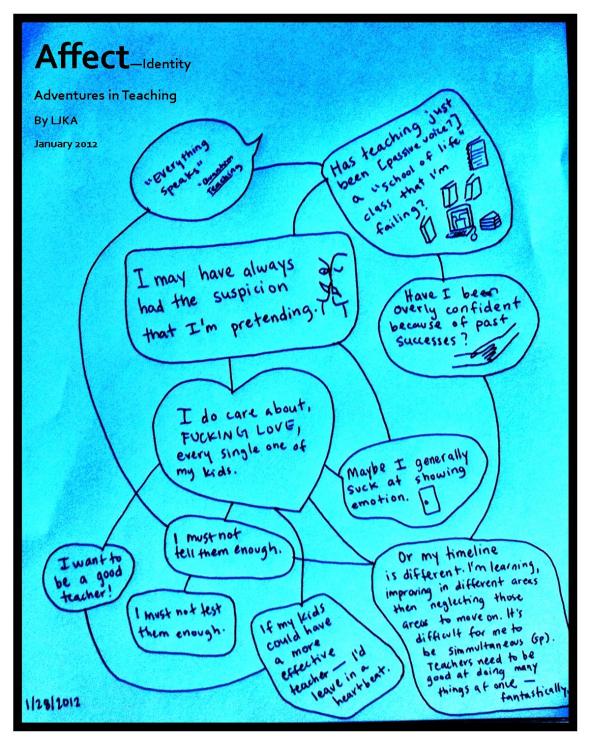 Affect—Identity
Adventures in Teaching
By LJKA
January 2012
"Everything
speaks"
Teaching
Has teaching just
been [passive voice?]
a "school of life"
class that I'm
failing?
I may have always
had the suspicion
that I'm pretending.
Have I been
overly confident
because of past
successes?
I do care about,
FUCKING LOVE,
every single one of
my kids.
Maybe I generally
suck at showing
emotion.
I must not
tell them enough.
I want to
be a good
teacher!
I must not test
them enough.
If my kids
could have
a more
effective
teacher — I'd
leave in a
heartbeat.
Or my timeline
is different. I'm learning,
improving in different areas
then neglecting those
areas to move on. It's
difficult for me to
be simmultaneous (sp).
Teachers need to be
good at doing many
things at once —
fantastically.
1/28/2012